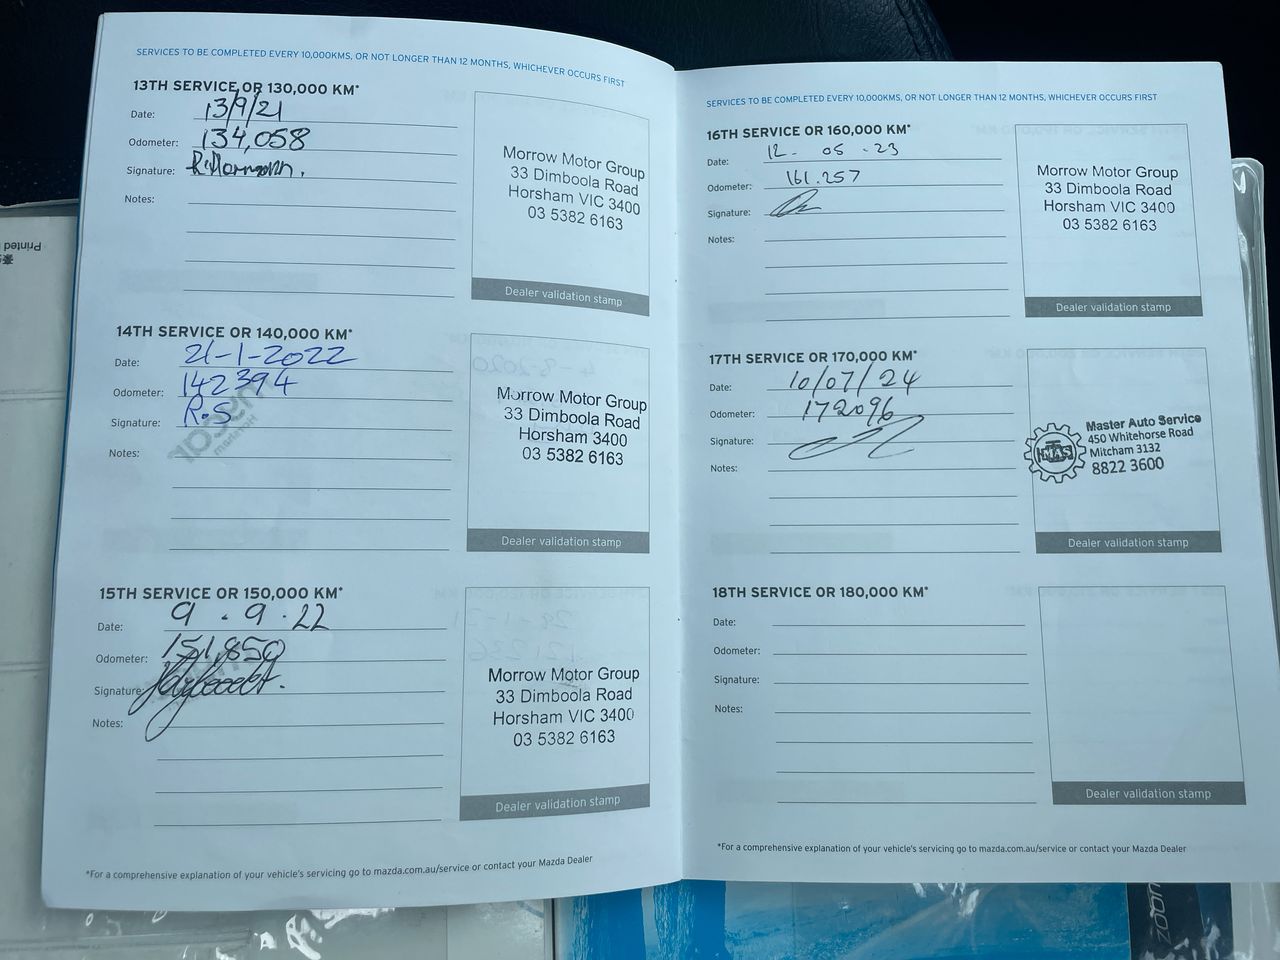 SERVICES TO BE COMPLETED EVERY 10,000KMS, OR NOT LONGER THAN 12 MONTHS, WHICHEVER OCCURS FIRST
13TH SERVICE OR 130,000 KM*
Date: 13/9/21
Odometer: 134,058
Signature:
Notes:
Morrow Motor Group
33 Dimboola Road
Horsham VIC 3400
03 5382 6163
Dealer validation stamp
14TH SERVICE OR 140,000 KM*
Date: 21-1-2022
Odometer: 142394
Signature: R.S
Notes:
Morrow Motor Group
33 Dimboola Road
Horsham 3400
03 5382 6163
Dealer validation stamp
15TH SERVICE OR 150,000 KM*
Date: 9.9.22
Odometer: 151,850
Signature:
Notes:
Morrow Motor Group
33 Dimboola Road
Horsham VIC 3400
03 5382 6163
Dealer validation stamp
*For a comprehensive explanation of your vehicle's servicing go to mazda.com.au/service or contact your Mazda Dealer
SERVICES TO BE COMPLETED EVERY 10,000KMS, OR NOT LONGER THAN 12 MONTHS, WHICHEVER OCCURS FIRST
16TH SERVICE OR 160,000 KM*
Date: 12-05-23
Odometer: 161.257
Signature:
Notes:
Morrow Motor Group
33 Dimboola Road
Horsham VIC 3400
03 5382 6163
Dealer validation stamp
17TH SERVICE OR 170,000 KM*
Date: 10/07/24
Odometer: 172096
Signature:
Notes:
MAS
Master Auto Service
450 Whitehorse Road
Mitcham 3132
8822 3600
Dealer validation stamp
18TH SERVICE OR 180,000 KM*
Date:
Odometer:
Signature:
Notes:
Dealer validation stamp
*For a comprehensive explanation of your vehicle's servicing go to mazda.com.au/service or contact your Mazda Dealer
Printed